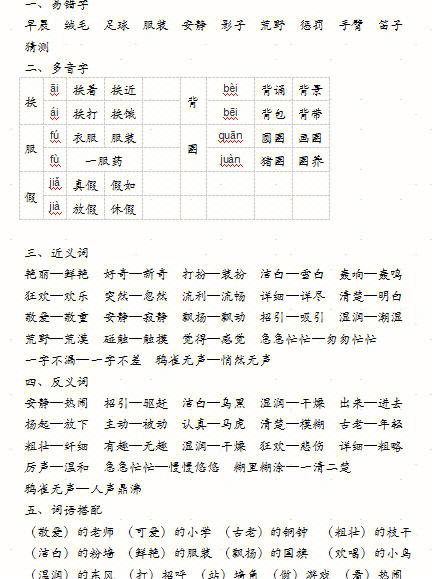 一、易错字
早晨 绒毛 足球 服装 安静 影子 荒野 惩罚 手臂 笛子
猜测
二、多音字
挨 āi 挨着 挨近 背 bèi 背诵 背景
ái 挨打 挨饿 bēi 背包 背带
服 fú 衣服 服装 圈 quān 圆圈 画圈
fù 一服药 juàn 猪圈 圈养
假 jiǎ 真假 假如
jià 放假 休假
三、近义词
艳丽—鲜艳 好奇—新奇 打扮—装扮 洁白—雪白 轰响—轰鸣
狂欢—欢乐 突然—忽然 流利—流畅 详细—详尽 清楚—明白
敬爱—敬重 安静—寂静 飘扬—飘动 招引—吸引 湿润—潮湿
荒野—荒漠 碰触—触摸 觉得—感觉 急急忙忙—匆匆忙忙
一字不漏—一字不差 鸦雀无声—悄然无声
四、反义词
安静—热闹 招引—驱赶 洁白—乌黑 湿润—干燥 出来—进去
扬起—放下 主动—被动 认真—马虎 清楚—模糊 古老—年轻
粗壮—纤细 有趣—无趣 湿润—干燥 狂欢—悲伤 详细—粗略
厉声—温和 急急忙忙—慢慢悠悠 糊里糊涂—一清二楚
鸦雀无声—人声鼎沸
五、词语搭配
（敬爱）的老师 （可爱）的小学 （古老）的铜钟 （粗壮）的枝干
（洁白）的粉墙 （鲜艳）的服装 （飘扬）的国旗 （欢唱）的小鸟
（湿润）的东风 （打）招呼 （站）墙角 （做）游戏 （看）热闹